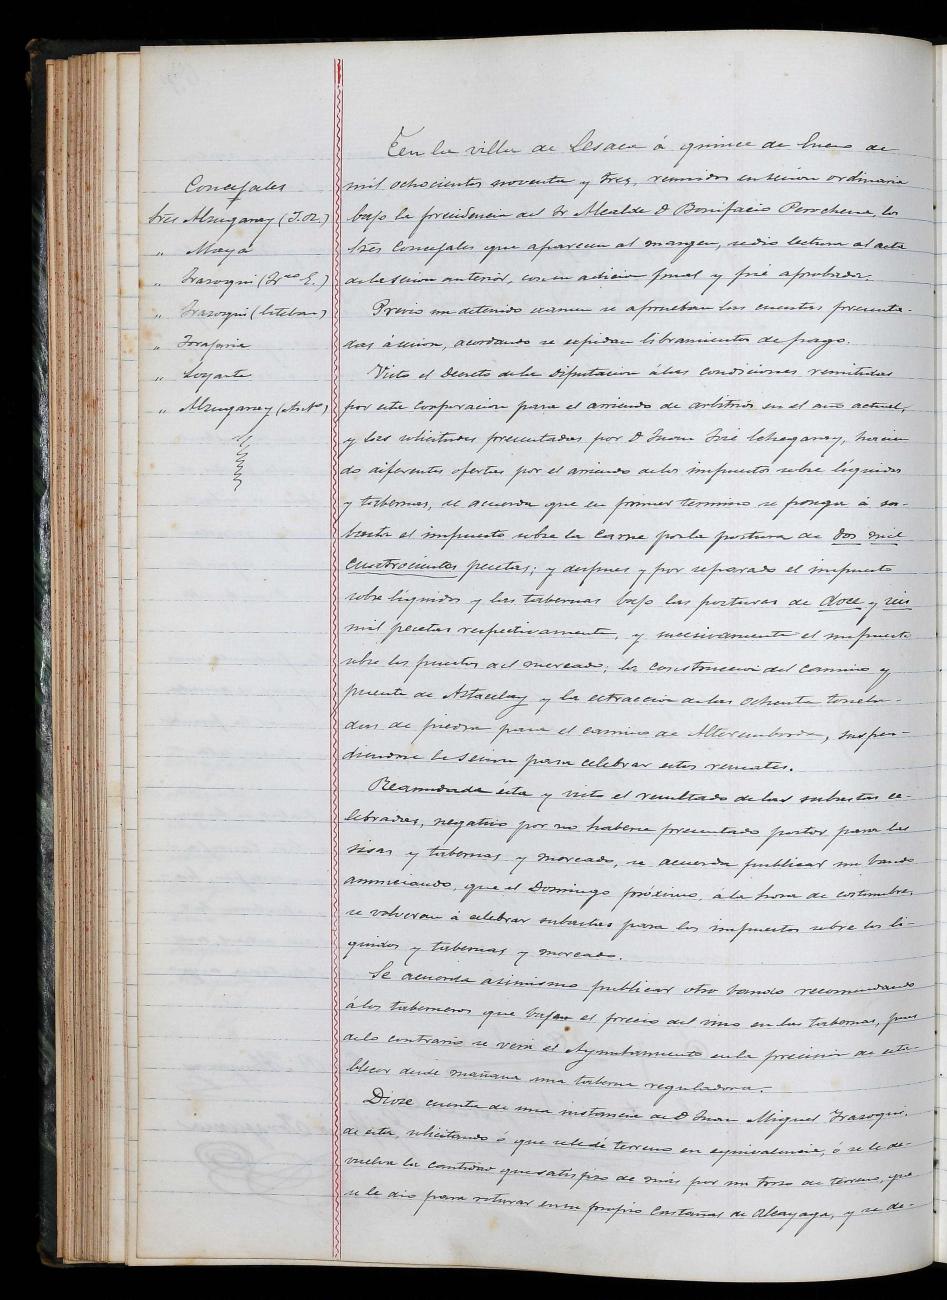 Concejales
Sres Alzuganay (J. M.)
" Maya
" Irazoqui (Fr.co E.)
" Irazoqui (Esteban)
"
" Loyarte
" Alzuganay (Ant.o)
En la villa de Lesaca á quince de Enero de
mil ochocientos noventa y tres, reunidos en sesion ordinaria
bajo la presidencia del Sr Alcalde D Bonifacio Perochena, los
Sres Concejales que aparecen al margen, se dio lectura al acta
de la sesion anterior, con su adicion final y fué aprobada.
Previo un detenido examen se aprueban las cuentas presenta-
das á sesion, acordando se expidan libramientos de pago.
Visto el Decreto de la Diputacion á las condiciones remitidas
por esta Corporacion para el arriendo de arbitrios en el año actual,
y las solicitudes presentadas por D Juan José Echeganay, hacien
do diferentes ofertas por el arriendo de los impuestos sobre líquidos
y tabernas, se acuerda que en primer termino se ponga á su-
basta el impuesto sobre la Carne por la postura de dos mil
cuatrocientas pesetas; y despues y por separado el impuesto
sobre liquidos y las tabernas bajo las posturas de doce y seis
mil pesetas respectivamente, y sucesivamente el impuesto
sobre los puestos del mercado; la construccion del camino y
puente de Astacelay y la extraccion de las ochenta tonela-
das de piedra para el camino de suspen-
diendose la sesion para celebrar estos remates.
Reanudada ésta y visto el resultado de las subastas ce-
lebradas, negativo por no haberse presentado postor para las
sisas y tabernas y mercado, se acuerda publicar un bando
anunciando, que el Domingo próximo, á la hora de costumbre,
se volveran á celebrar subastas para los impuestos sobre los lí-
quidos y tabernas y mercado.
Se acuerda asimismo publicar otro bando recomendando
á los taberneros que bajen el precio del vino en las tabernas, pues
de lo contrario se verá el Ayuntamiento en la precision de esta-
blecer desde mañana una taberna reguladora.
Diose cuenta de una instancia de D Juan Miguel Irazoqui,
de esta, solicitando ó que se le dé terreno en equivalencia, ó se le de-
vuelva la cantidad que satisfizo de más por un trozo de terreno, que
se le dio para roturar en su propio Castañal de Alcayaga, y se de-